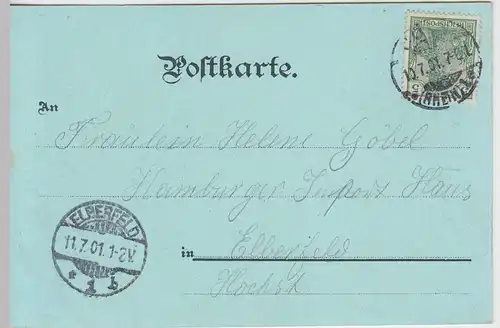 Postkarte.
10.7.01. 7-8
(RHEIN)
An
Fräulein Helene Göbel
Hamburger Import Haus
ELBERFELD
11.7.01.1-2V.
* 1 b
in Elberfeld
Hochstr